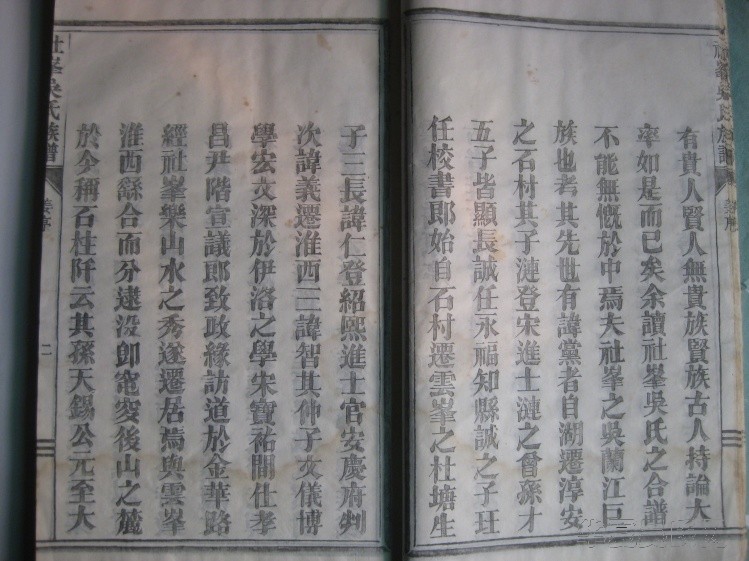 有貴人賢人無貴族賢族古人持論大
率如是而已矣余讀社峯吳氏之合譜
不能無慨於中焉夫社峯之吳蘭江巨
族也考其先世有諱黨者自湖遷淳安
之石村其子漣登宋進士漣之曾孫才
五子皆顯長誠任永福知縣誠之子玨
任校書郎始自石村遷雲峯之杜塘生
子三長諱仁登紹熙進士官安慶府判
次諱義遷淮西三諱智其仲子文儀博
學宏文深於伊洛之學宋寶祐間仕孝
昌尹階宣議郎致政緣訪道於金華路
經社峯樂山水之秀遂遷居焉與雲峯
淮西繇合而分逮沒卽窀穸後山之麓
於今稱石柱阡云其孫天錫公元至大
社峯吳氏族譜
姜序
二